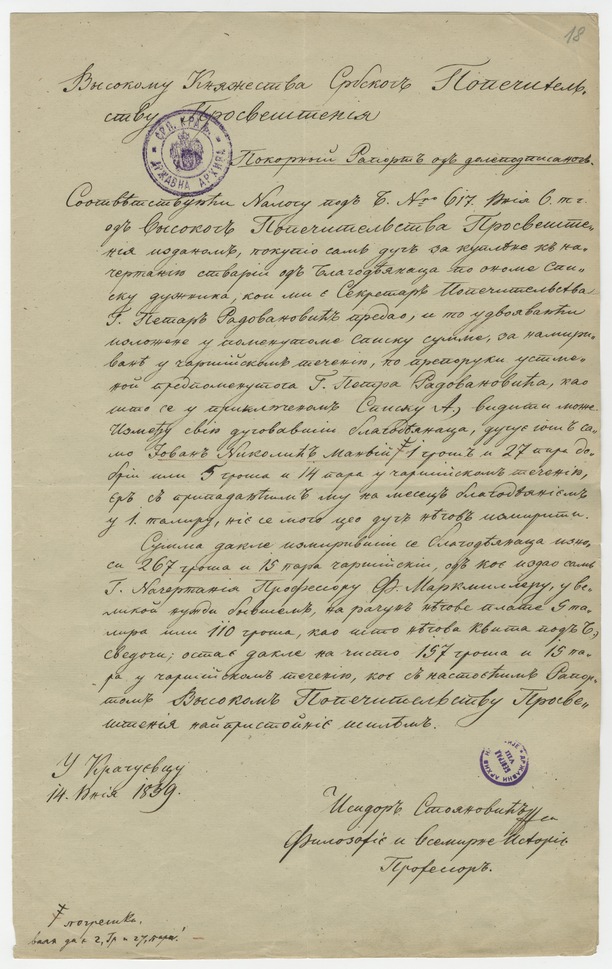 18
Высокому Княжества Србскогъ Попечитель-
ству Просвештенія
СРП. КРАЉ. ДРЖАВНА АРХИВА
Покорный Рапортъ одъ долеподписаногъ.
Соотвѣтствуюћи Налогу подъ Б. № 617. Юнія 6. т. г.
одъ Высокогъ Попечительства Просвеште-
нія изданомъ, покупіо самъ дугъ за купљене къ на-
чертанію ствари одъ Благодѣянаца по ономе спи-
ску дужника, кои ми є Секретаръ Попечительства
Г. Петаръ Радовановићъ предао, и то удвояваюћи
изложене у поменутоме списку сумме, за намири-
ванѣ у чаршійскомъ теченію, по препоруки устме-
ной предпоменутога Г. Петра Радовановића, као
што се у приключеномъ Списку А, видити може.
Између свію дуговавшій благодѣянаца, дугує іошъ са-
мо Іованъ Николићъ ☨ 1 грошъ и 27 пара до-
брій или 5 гроша и 14 пара у чаршійскомъ теченію,
єръ съ припадаюћимъ му на месецъ благодѣяніємъ
у 1. талиру, ніє се могао цео дугъ нѣговъ измирити.
Сумма дакле измирившій се благодѣянаца изно-
си 267 гроша и 15 пара чаршійскій, одъ коє издао самъ
Г. Начертанія Професору Ф. Маркмиллеру, у ве-
ликой нужди бывшемъ, на рачунъ нѣгове плате 5 та-
лира или 110 гроша, као што нѣгова квита подъ Б,
сведочи; остає дакле на чисто 157 гроша и 15 па-
ра у чаршійскомъ теченію, коє съ настоєћимъ Рапор-
томъ Высокомъ Попечительству Просве-
штенія найпристойніє шилѣмъ.
У Крагуєвцу
14. Юнія 1839.
Исидоръ Стояновићъ
Философіє и Всемирне Исторіє
Професоръ.
☨ погрешка.
вали да є 2, гр и 27, пара!